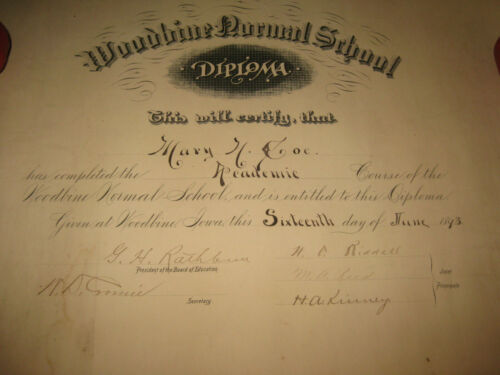 Woodbine Normal School
DIPLOMA
This will certify, that
Mary N. Coe.
has completed the Academic Course of the
Woodbine Normal School, and is entitled to this Diploma
Given at Woodbine Iowa, this Sixteenth day of June 1893.
G. H. Rathbun
President of the Board of Education
Secretary
W. O. Riddell
M. A. Reed
H. A. Kinney
Joint
Principals